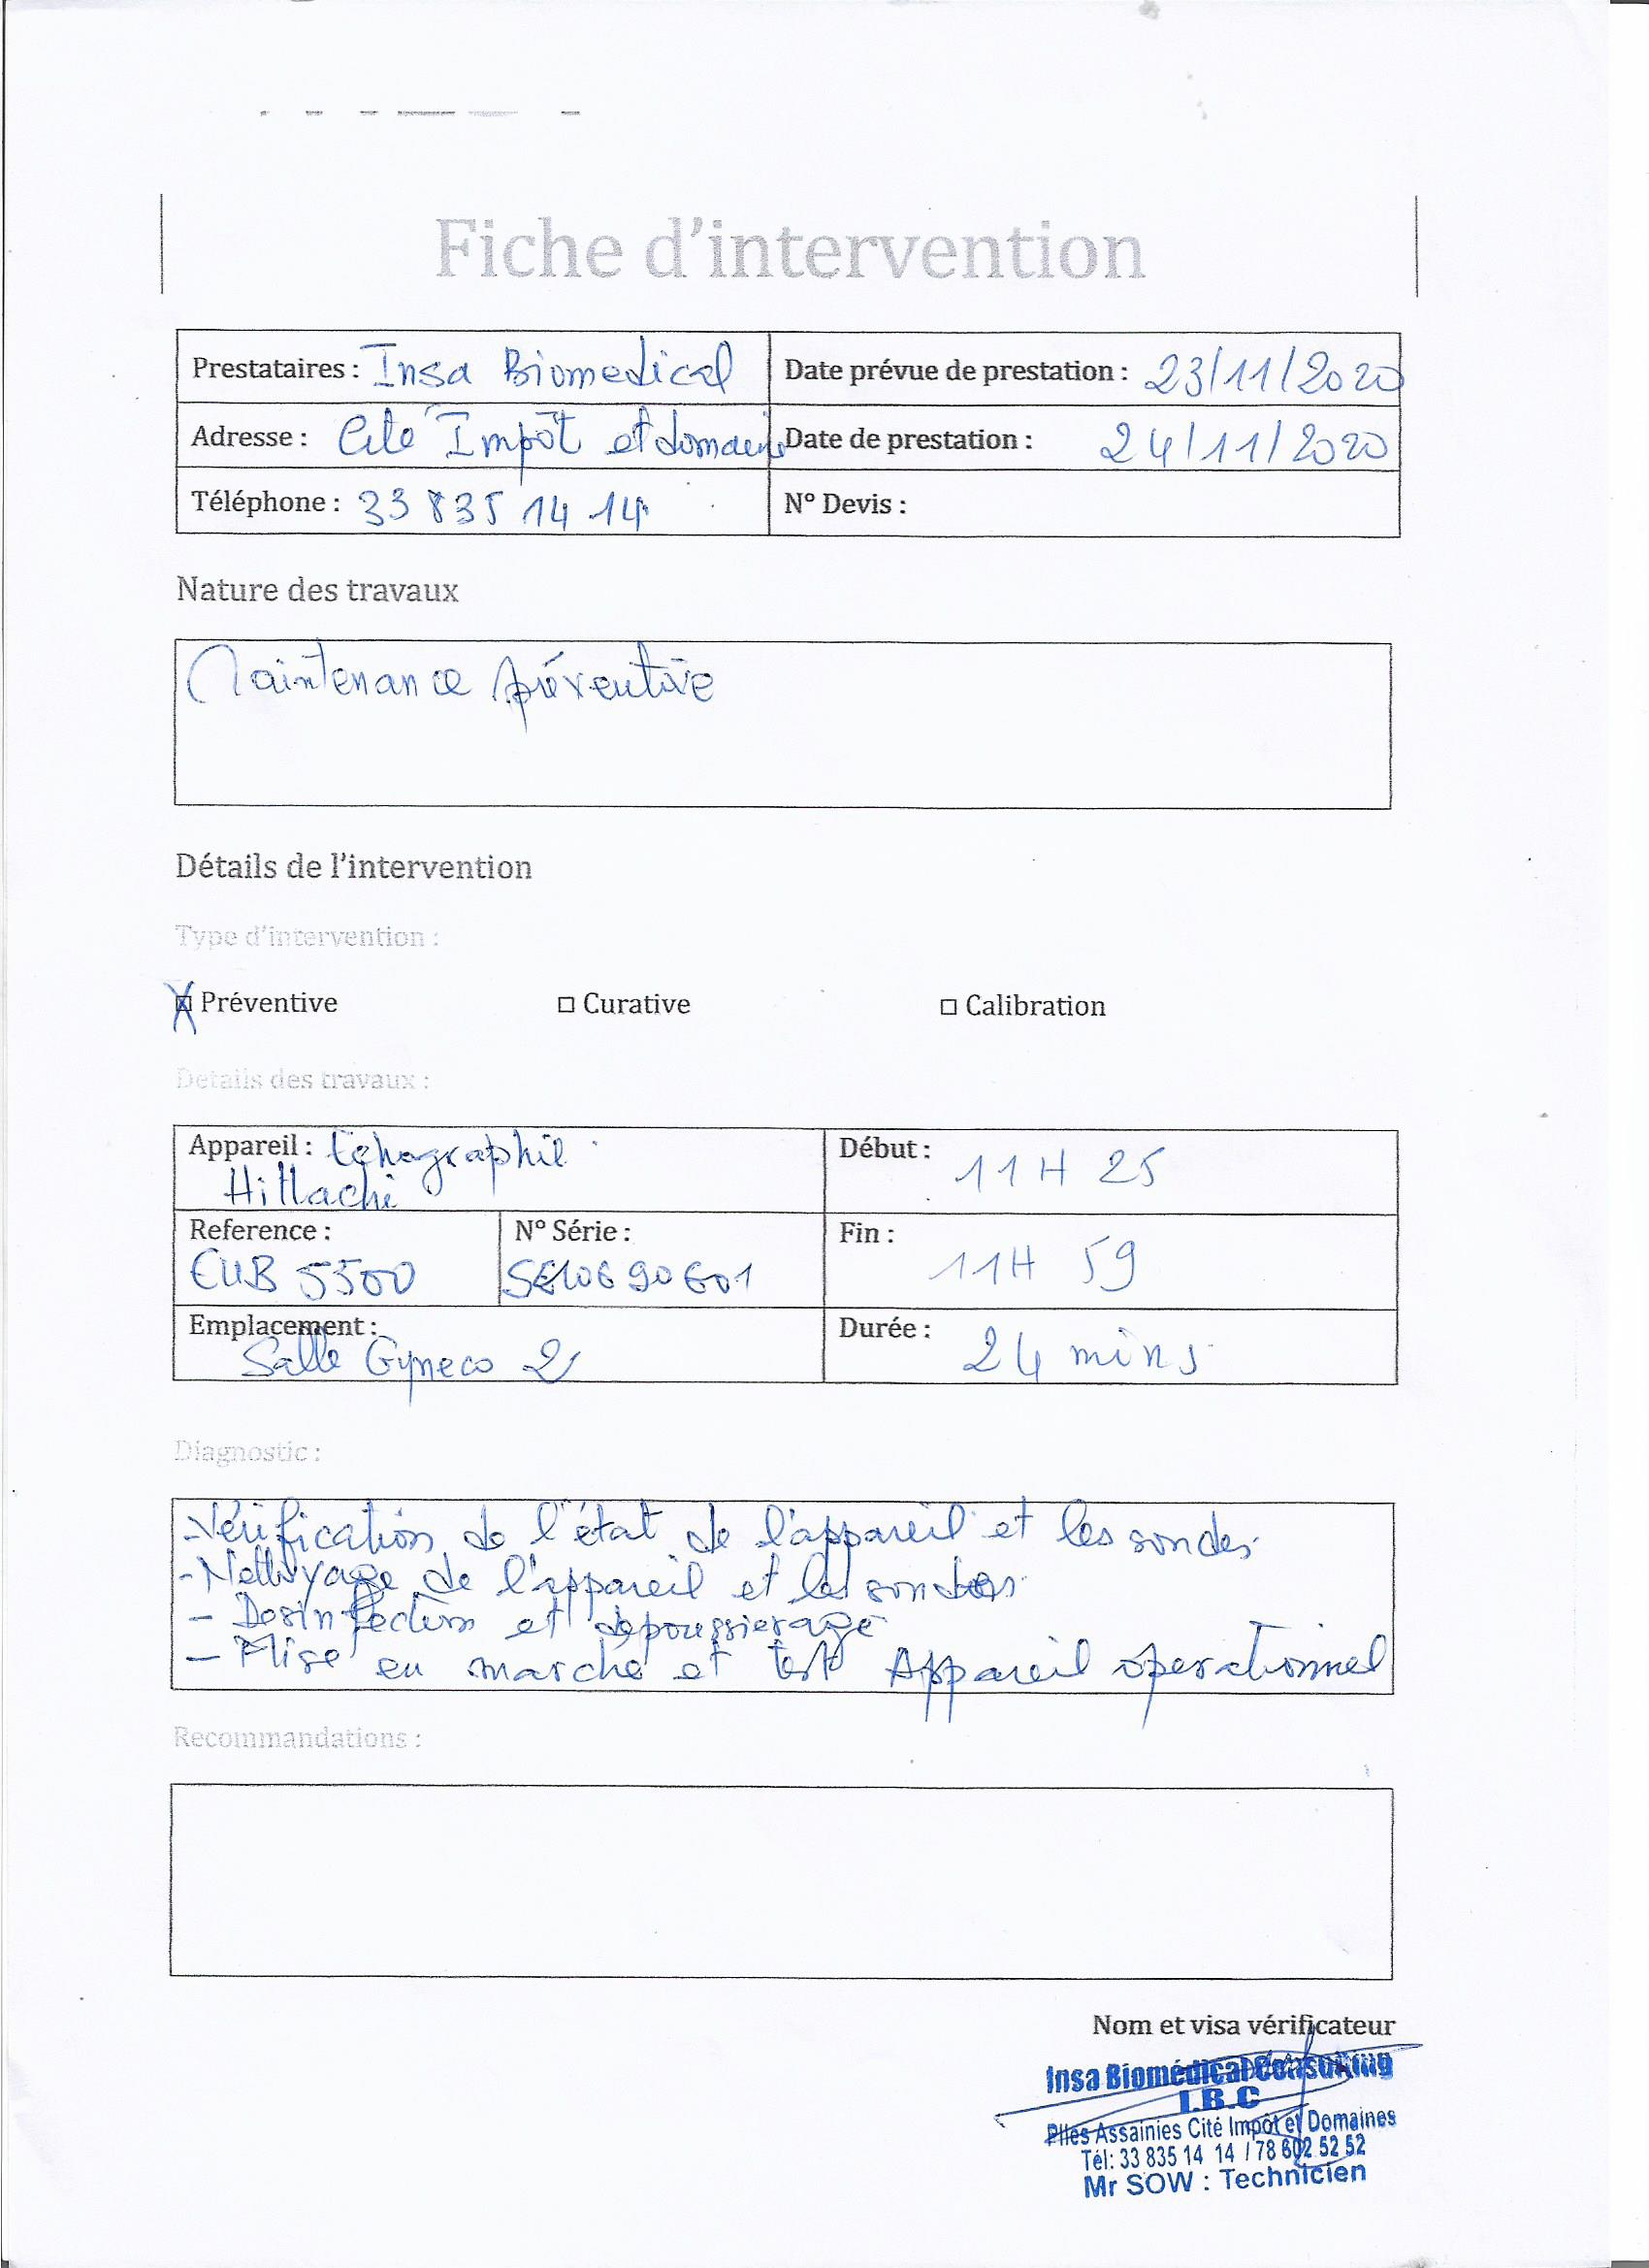 Fiche d'intervention
Prestataires : Insa Biomedical
Date prévue de prestation : 23/11/2020
Adresse : Cité Impôt et domaine
Date de prestation : 24/11/2020
Téléphone : 33 835 14 14
N° Devis :
Nature des travaux
Maintenance préventive
Détails de l'intervention
Type d'intervention :
Préventive
Curative
Calibration
Details des travaux :
Appareil : Echographie
Hittachi
Début : 11H 25
Reference :
EUB 5500
N° Série :
SE10690601
Fin : 11H 59
Emplacement :
Salle Gyneco 2
Durée : 24 mins
Diagnostic :
- Vérification de l'état de l'appareil et les sondes
- Nettoyage de l'appareil et les sondes
- Desinfection et depoussierage
- Mise en marche et test Appareil operationnel
Recommandations :
Nom et visa vérificateur
Insa Biomédical Consulting
I.B.C
Plles Assainies Cité Impôt et Domaines
Tél: 33 835 14 14 / 78 602 52 52
Mr SOW : Technicien